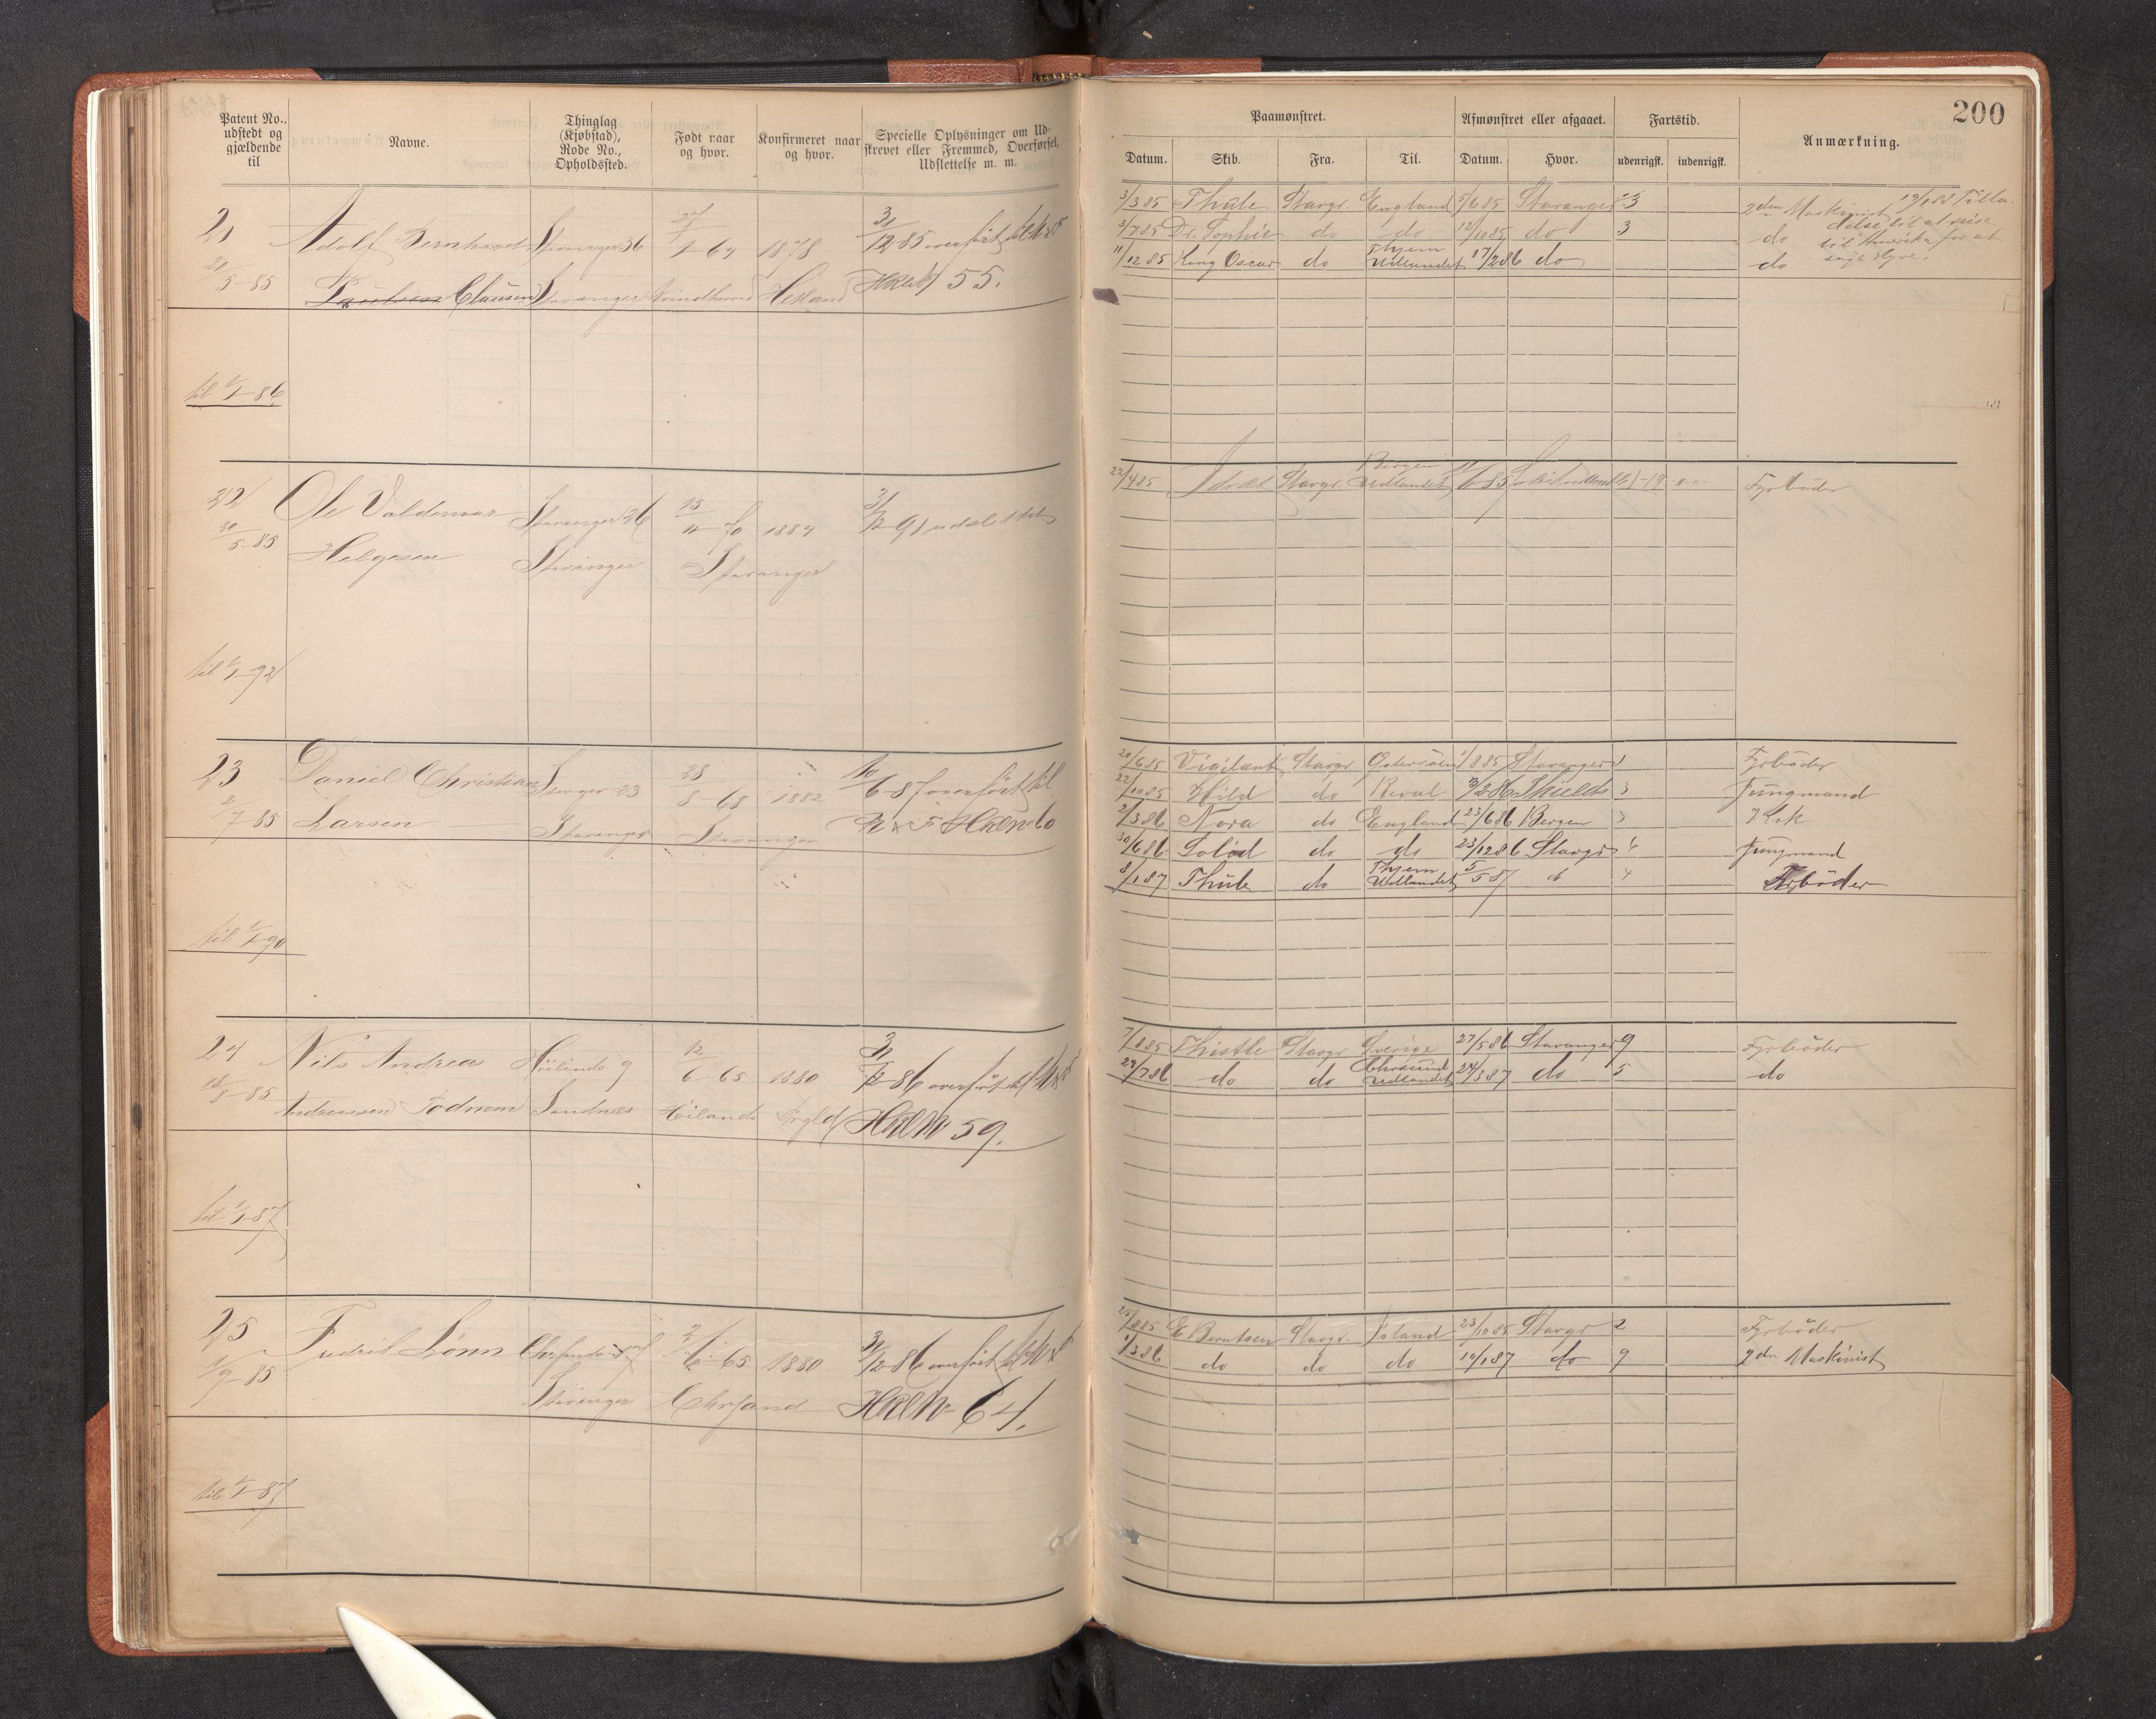 200
Patent No., udstedt og gjældende til
Navne.
Thinglag (Kjøbstad), Rode No., Opholdssted.
Født naar og hvor.
Konfirmeret naar og hvor.
Specielle Oplysninger om Udskrevet eller Fremmed, Overførsel, Udslettelse m. m.
Paamønstret.
Afmønstret eller afgaaet.
Fartstid.
Anmærkning.
Datum. Skib. Fra. Til. Datum. Hvor. udenrigsk. indenrigsk.
21 Adolf Bernhard Stavanger 36 1-64 1878 31/12 85 overført til
5-85 Paulsen Clausen Stavanger Hetland 55.
til 1/1-86
3/3 85 Thule Stavgr. England /6 85 Stavanger 3 2den Maskinist
3/7 85 Dr. Sophie do do 12/10 85 do 3 do
11/12 85 King Oscar do Thjem Udlandet 17/2 86 do do
22 Ole Valdemar Stavanger 36 15/11 70 1884 31/12-91 udslettet
30/5-85 Helgesen Stavanger Stavanger
til 1/1-92
22/4 85 Idræt Stavgr. Bergen Udlandet Fyrbøder
23 Daniel Christian Stavger 23 28/8-68 1882 10/6-87 overført til
2/7-85 Larsen Stavanger Stavanger
til 1/1-90
20/6 85 Vigilant Stavgr /8 85 Stavanger 1 Fyrbøder
22/10 85 Hild do Reval /2 86 Shields 3 Jungmand
2/3 86 Nora do England 23/6 86 Bergen 3 Kok
30/6 86 Solid do do 23/12 86 Stavgr 6 Jungmand
8/1 87 Thule do Thjem Udlandet 5/5 87 do 4 Fyrbøder
24 Nils Andreas Høilands 9 12/6-65 1880 31/12-86 overført til
18/8-85 Andreassen Fodnem Sandnes Høilands 59.
til 1/1-87
7/8 85 Thistle Stavgr Sverige 27/5 86 Stavanger 9 Fyrbøder
22/7 86 do do Chrsund Udlandet 24/3 87 do 5 do
25 Fredrik Lönn 2/6-65 1880 31/12-86 overført til
1/9-85 Stavanger Chrsand 64.
til 1/1-87
25/8 85 E Berntsen Stavgr. Island 23/10 85 Stavgr 2 Fyrbøder
1/3 86 do do do 14/1 87 do 9 2den Maskinist